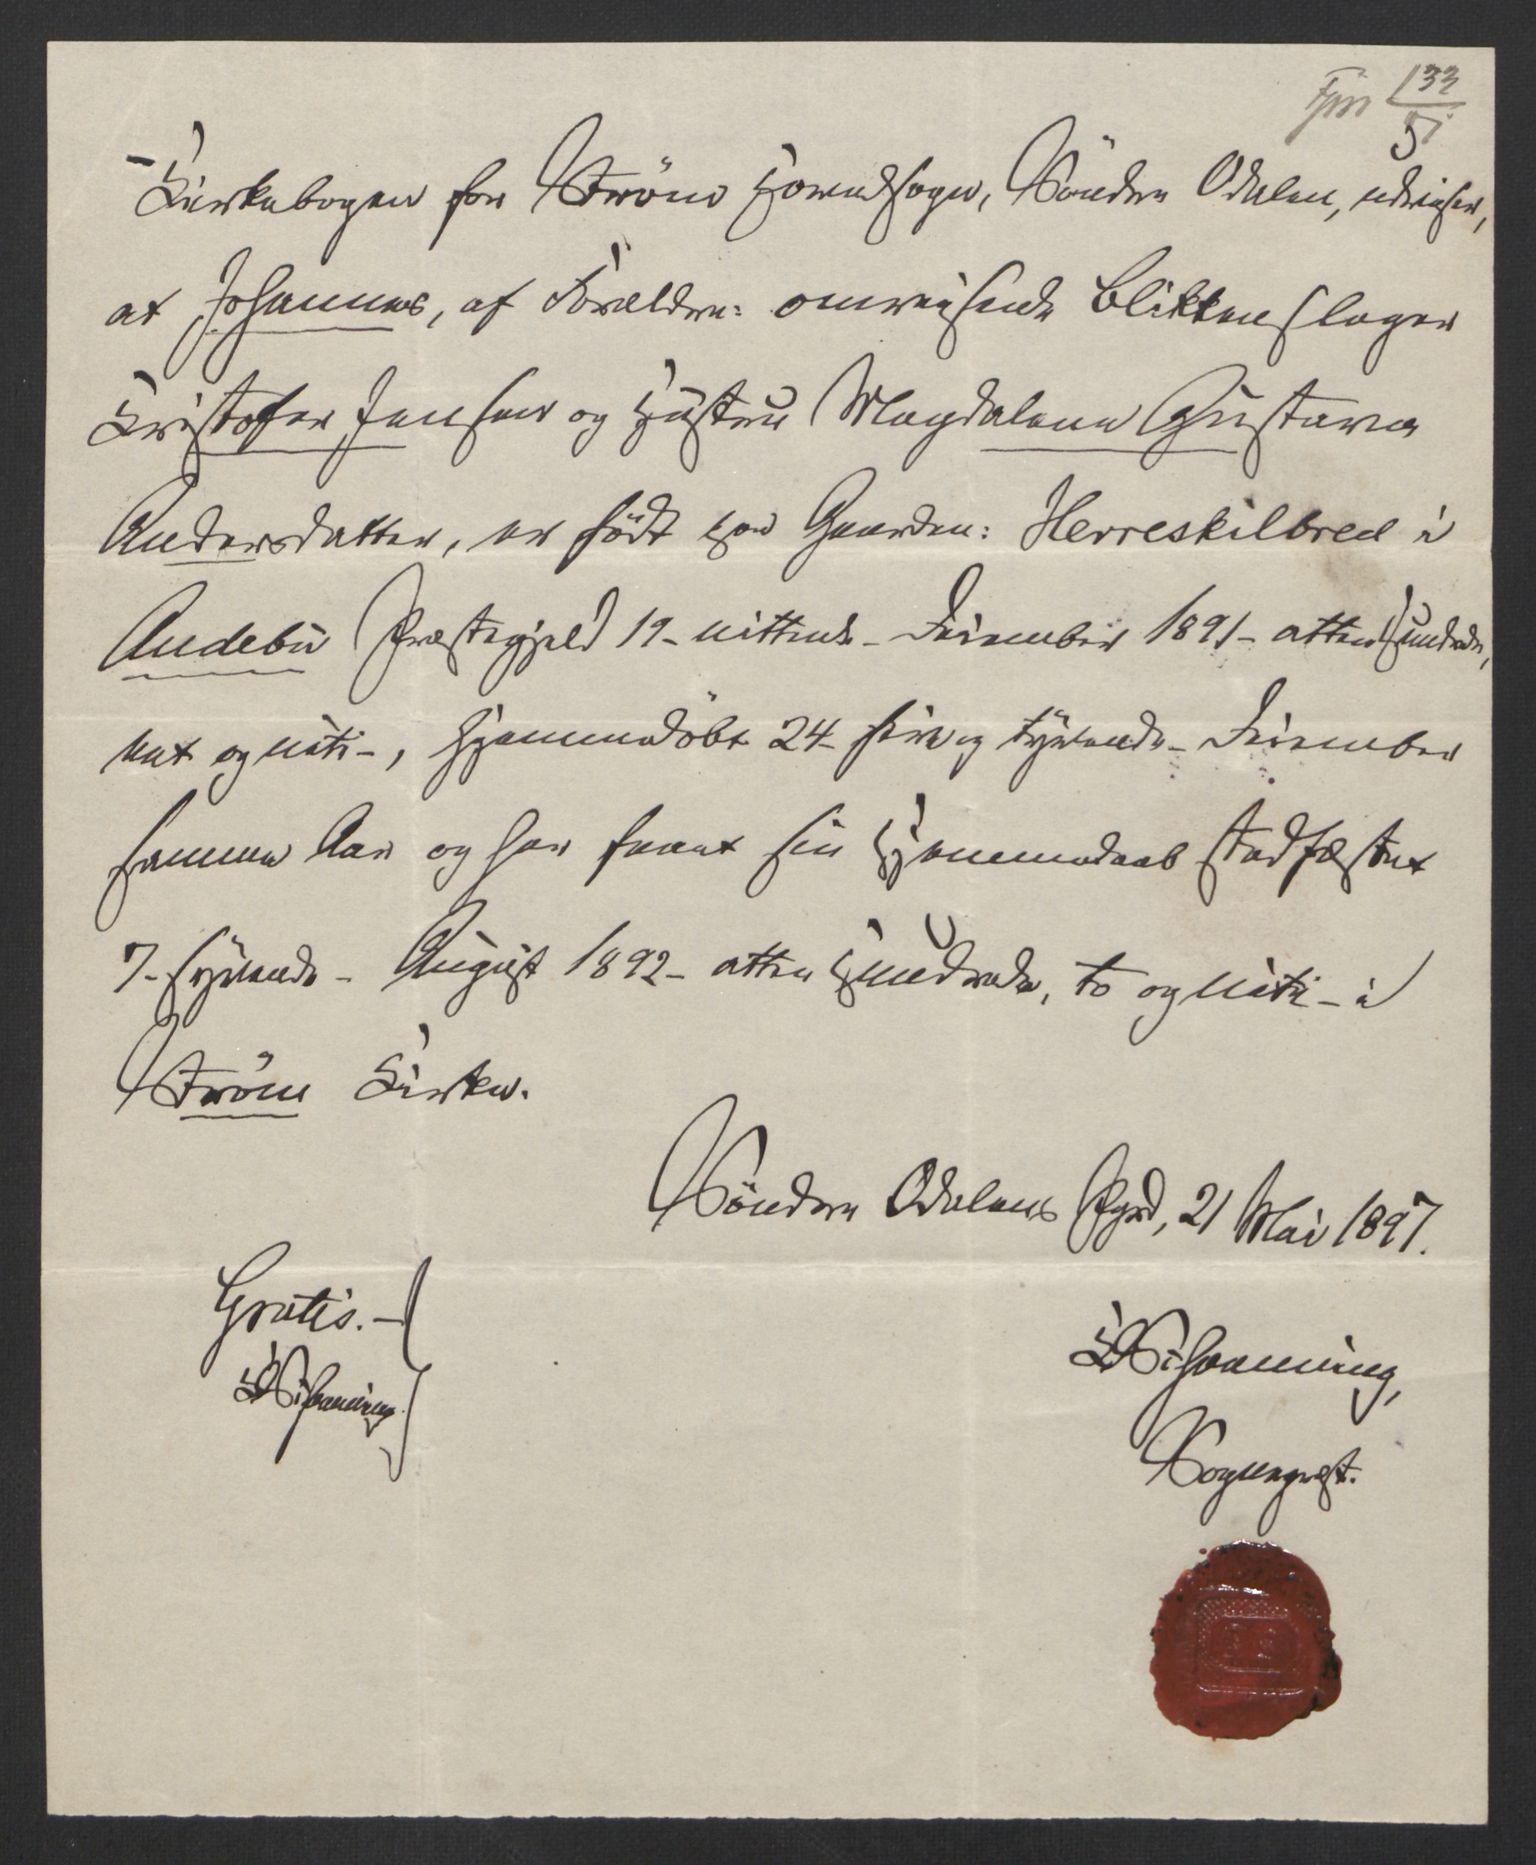 133
5
Kirkebogen for Ström Hovedsogn, Söndre Odalen, udviser,
at Johannes, af Forældre: omreisende Blikkenslager
Kristofer Jensen og Hustru Magdalena Gustava
Andersdatter, er födt paa Gaarden: Herreskilbred i
Andebu Præstegjeld 19- nittende- December 1891- attenhundrede,
net og niti-, hjemmedöbt 24- fire og tyvende- December
samme Aar og har faaet sin Hjemmedaab stadfæstet
7- syvende- August 1892- atten Hundrede, to og niti- i
Ström Kirke.
Söndre Odalens Pgd, 21 Mai 1897.
Gratis.-
Sogneprest.